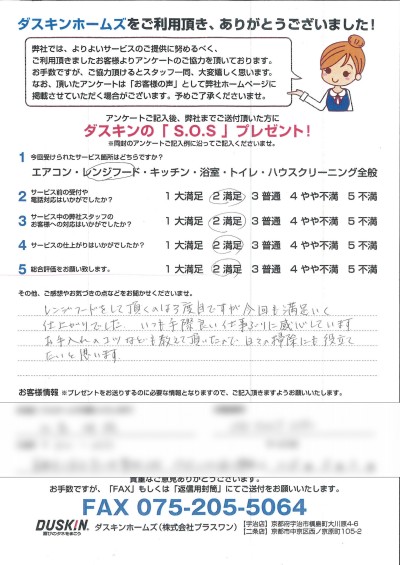 ダスキンホームズをご利用頂き、ありがとうございました!
弊社では、よりよいサービスのご提供に努めるべく、
ご利用頂きましたお客様よりアンケートのご協力を頂いております。
お手数ですが、ご協力頂けるとスタッフ一同、大変嬉しく思います。
なお、頂いたアンケートは「お客様の声」として弊社ホームページに
掲載させていただく場合がございます。予めご了承くださいませ。
アンケートご記入後、弊社までご送付頂いた方に
ダスキンの「S.O.S」プレゼント!
※同封のアンケートご記入例に沿ってご記入くださいませ。
1 今回受けられたサービス箇所はどちらですか?
エアコン・レンジフード・キッチン・浴室・トイレ・ハウスクリーニング全般
2 サービス前の受付や
電話対応はいかがでしたか?
1 大満足 2 満足 3 普通 4 やや不満 5 不満
3 サービス中の弊社スタッフの
お客様への対応はいかがでしたか?
1 大満足 2 満足 3 普通 4 やや不満 5 不満
4 サービスの仕上がりはいかがでしたか?
1 大満足 2 満足 3 普通 4 やや不満 5 不満
5 総合評価をお願い致します。
1 大満足 2 満足 3 普通 4 やや不満 5 不満
その他、ご感想やお気づきの点などをお聞かせくださいませ。
レンジフードをして頂くのは3度目ですが今回も満足いく
仕上がりでした いつも手際良い仕事ぶりに感心しています
お手入れのコツなども教えて頂いたので日々の掃除にも役立て
たいと思います
お客様情報 ※プレゼントをお送りするのに必要な情報となりますので、ご記入頂きますようお願いいたします。
貴重なご意見ありがとうございました。
お手数ですが、「FAX」もしくは「返信用封筒」にてご送付をお願いいたします。
FAX 075-205-5064
DUSKIN
喜びのタネをまこう
ダスキンホームズ(株式会社プラスワン)
【宇治店】京都府宇治市槇島町大川原4-6
【二条店】京都市中京区西ノ京原町105-2